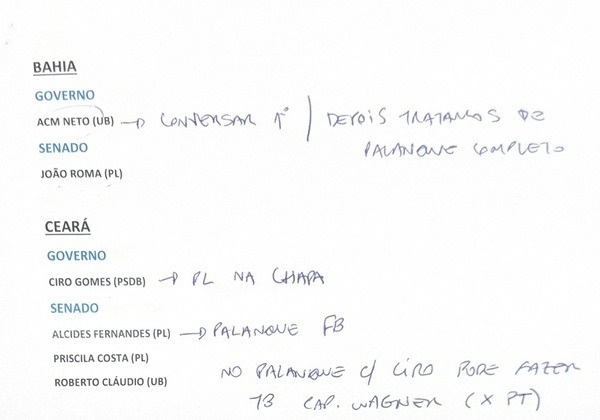 BAHIA
GOVERNO
ACM NETO (UB) → CONVERSAR 1° | DEPOIS TRATAMOS DE
SENADO PALANQUE COMPLETO
JOÃO ROMA (PL)
CEARÁ
GOVERNO
CIRO GOMES (PSDB) → PL NA CHAPA
SENADO
ALCIDES FERNANDES (PL) → PALANQUE FB
PRISCILA COSTA (PL)
NO PALANQUE C/ CIRO PODE FAZER
ROBERTO CLÁUDIO (UB)
13 CAP. WAGNER (X PT)